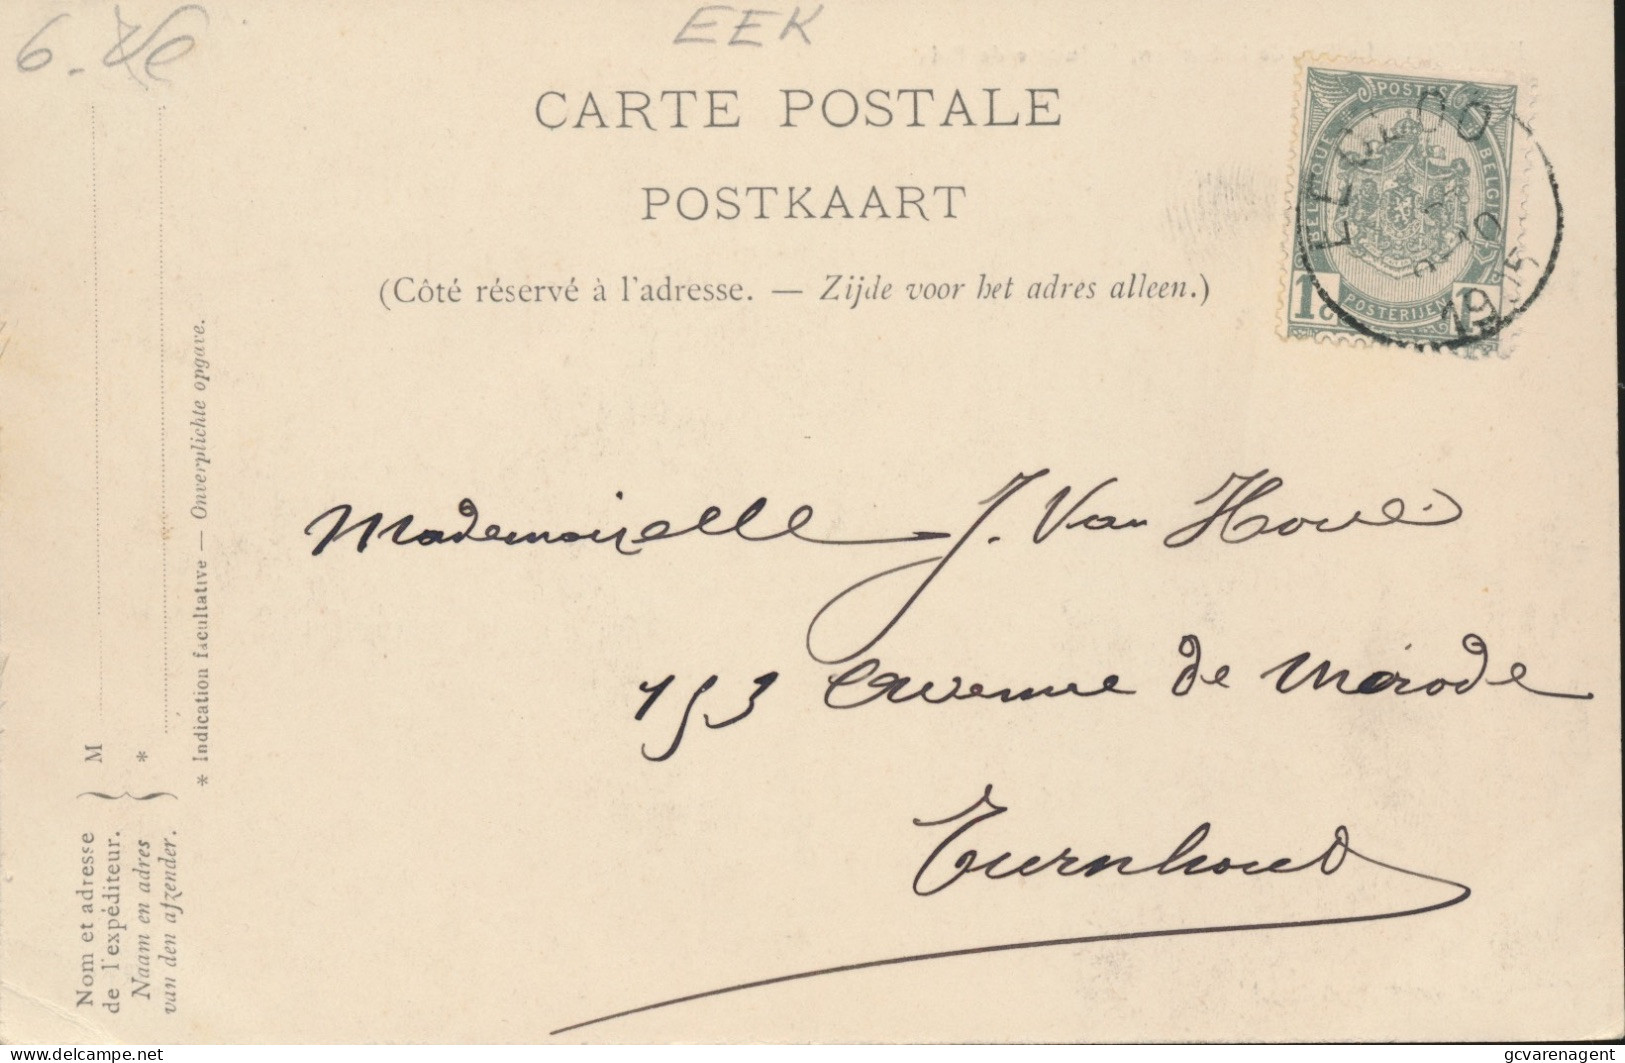 EEK
CARTE POSTALE
POSTKAART
(Côté réservé à l'adresse. — Zijde voor het adres alleen.)
POSTES
BELGIQUE
BELGIË
POSTERIJEN
1c
1c
EECLOO
10
19 5
Mademoiselle J. Van Hove
153 Avenue de Mérode
Turnhout
Nom et adresse
de l'expéditeur.
Naam en adres
van den afzender.
M
*
* Indication facultative — Onverplichte opgave.
delcampe.net
gcvarenagent